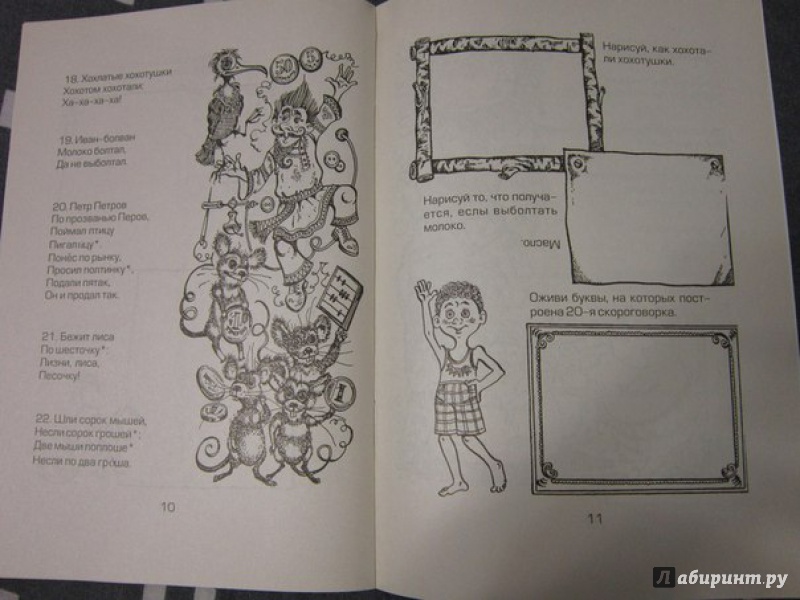 18. Хохлатые хохотушки
Хохотом хохотали:
Ха-ха-ха-ха!
19. Иван-болван
Молоко болтал,
Да не выболтал.
20. Петр Петров
По прозванью Перов,
Поймал птицу
Пигалицу*.
Понёс по рынку,
Просил полтинку*,
Подали пятак,
Он и продал так.
21. Бежит лиса
По шесточку*:
Лизни, лиса,
Песочку!
22. Шли сорок мышей,
Несли сорок грошей*;
Две мыши поплоше*
Несли по два гро́ша.
10
Нарисуй, как хохота-
ли хохотушки.
Нарисуй то, что получа-
ется, еслы выболтать
молоко.
Масло.
Оживи буквы, на которых пост-
роена 20-я скороговорка.
11
Лабиринт.ру